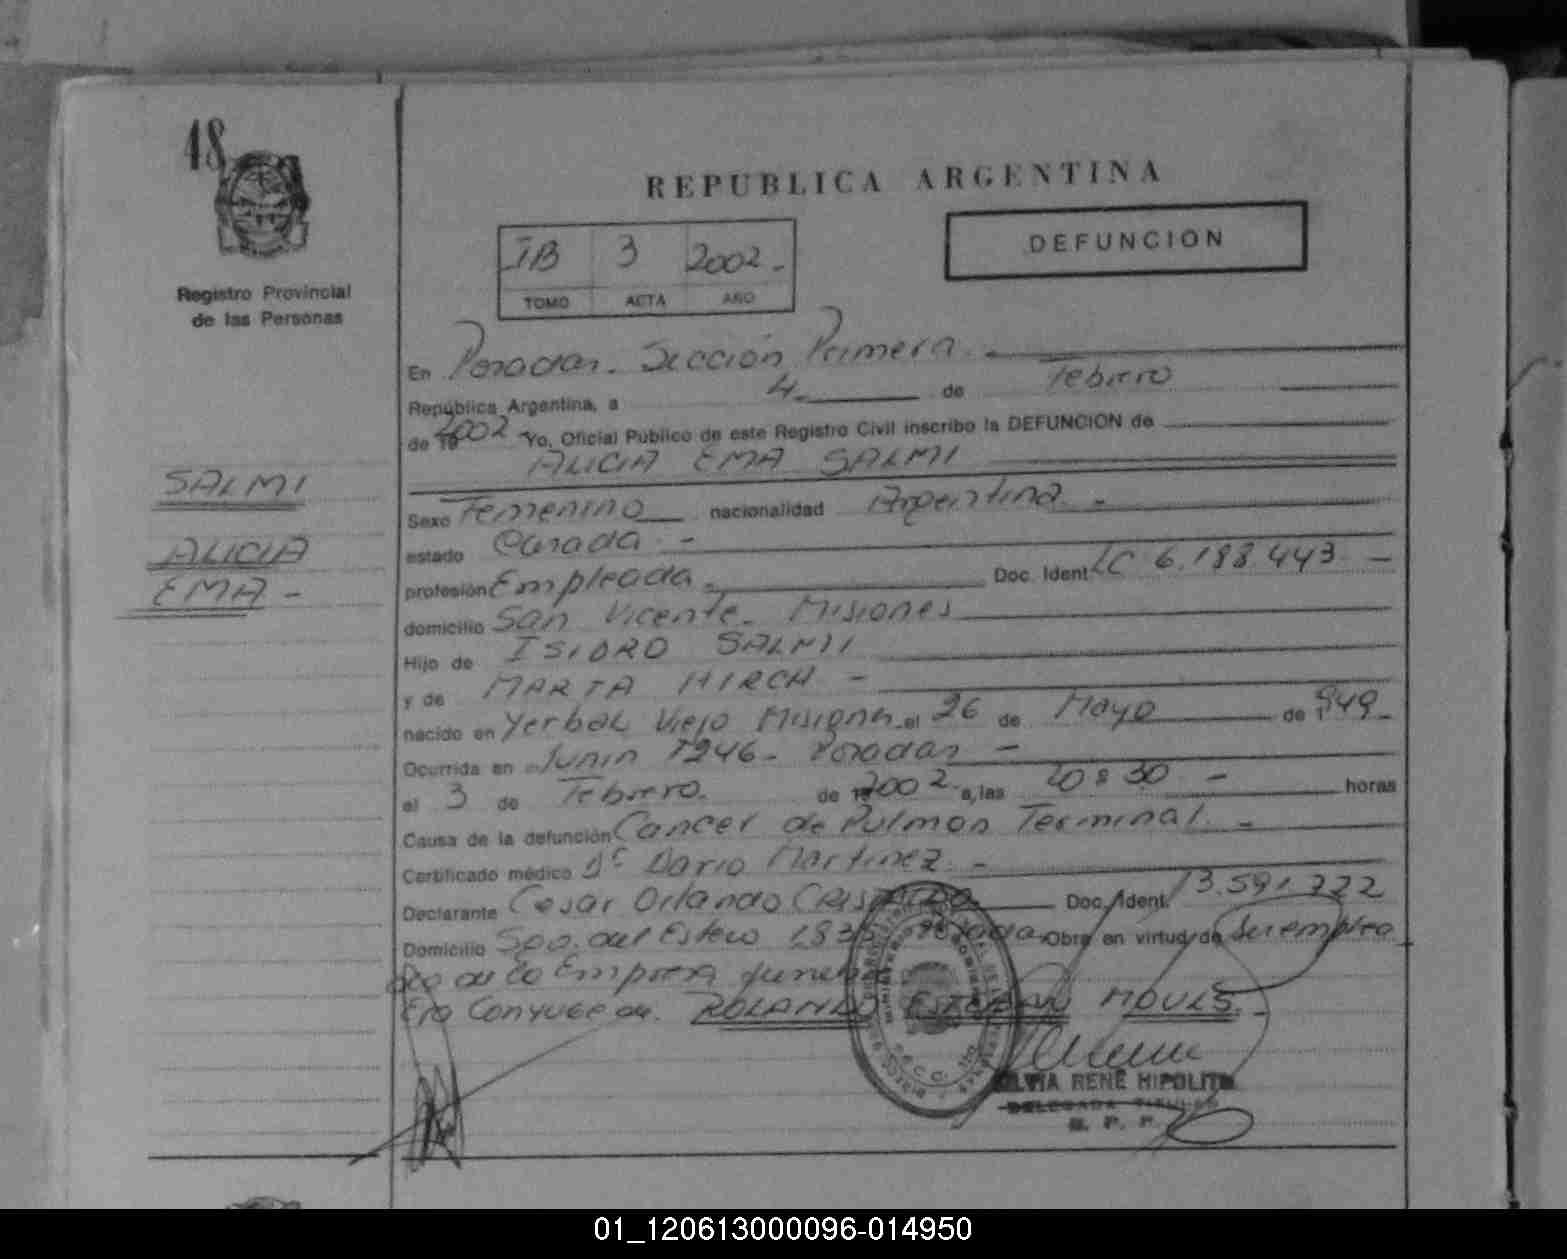 18
REPUBLICA ARGENTINA
IB 3 2002.-
TOMO ACTA AÑO
DEFUNCION
Registro Provincial
de las Personas
En Posadas. Sección Primera.
República Argentina, a 4 de Febrero
de 19 2002 Yo, Oficial Público de este Registro Civil inscribo la DEFUNCION de
ALICIA EMA SALMI
SALMI
ALICIA
EMA -
Sexo Femenino nacionalidad Argentina. -
estado Casada. -
profesión Empleada. Doc. Ident. LC 6.188.443 -
domicilio San Vicente. Misiones
Hijo de ISIDRO SALMI
y de MARTA HIRCH -
nacido en Yerbal Viejo Misiones el 26 de Mayo de 1949.-
Ocurrida en Junin 1246- Posadas -
el 3 de Febrero. de 19 2002. a las 20:30 - horas
Causa de la defunción Cancer de Pulmon Terminal. -
Certificado médico Dr Dario Martinez. -
Declarante Cesar Orlando Doc. Ident. 13.591.722
Domicilio Sgo. del Estero Posadas Obra en virtud de Ser emplea
do de la Empresa funebre
Era Conyuge de. ROLANDO ESTEBAN MOULS.-
SILVIA RENE HIPOLITO
DELEGADA TITULAR
R. P. P.
01_120613000096-014950